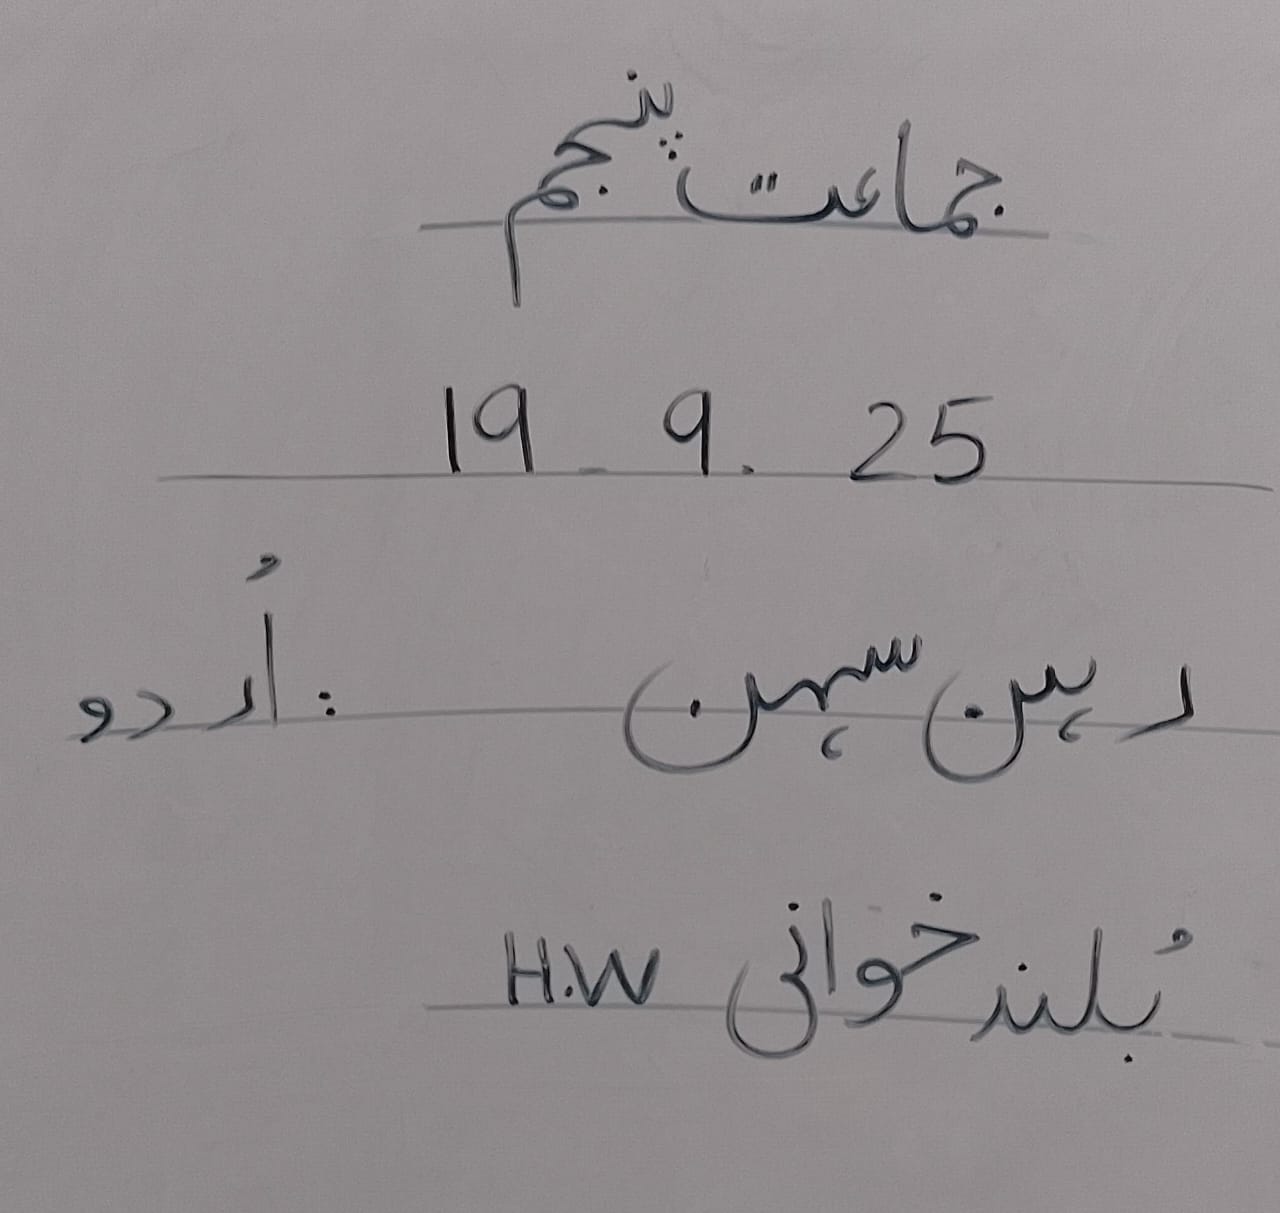 جماعت پنجم
19-9.25
رہن سہن : اُردو
بُلند خوانی H.W